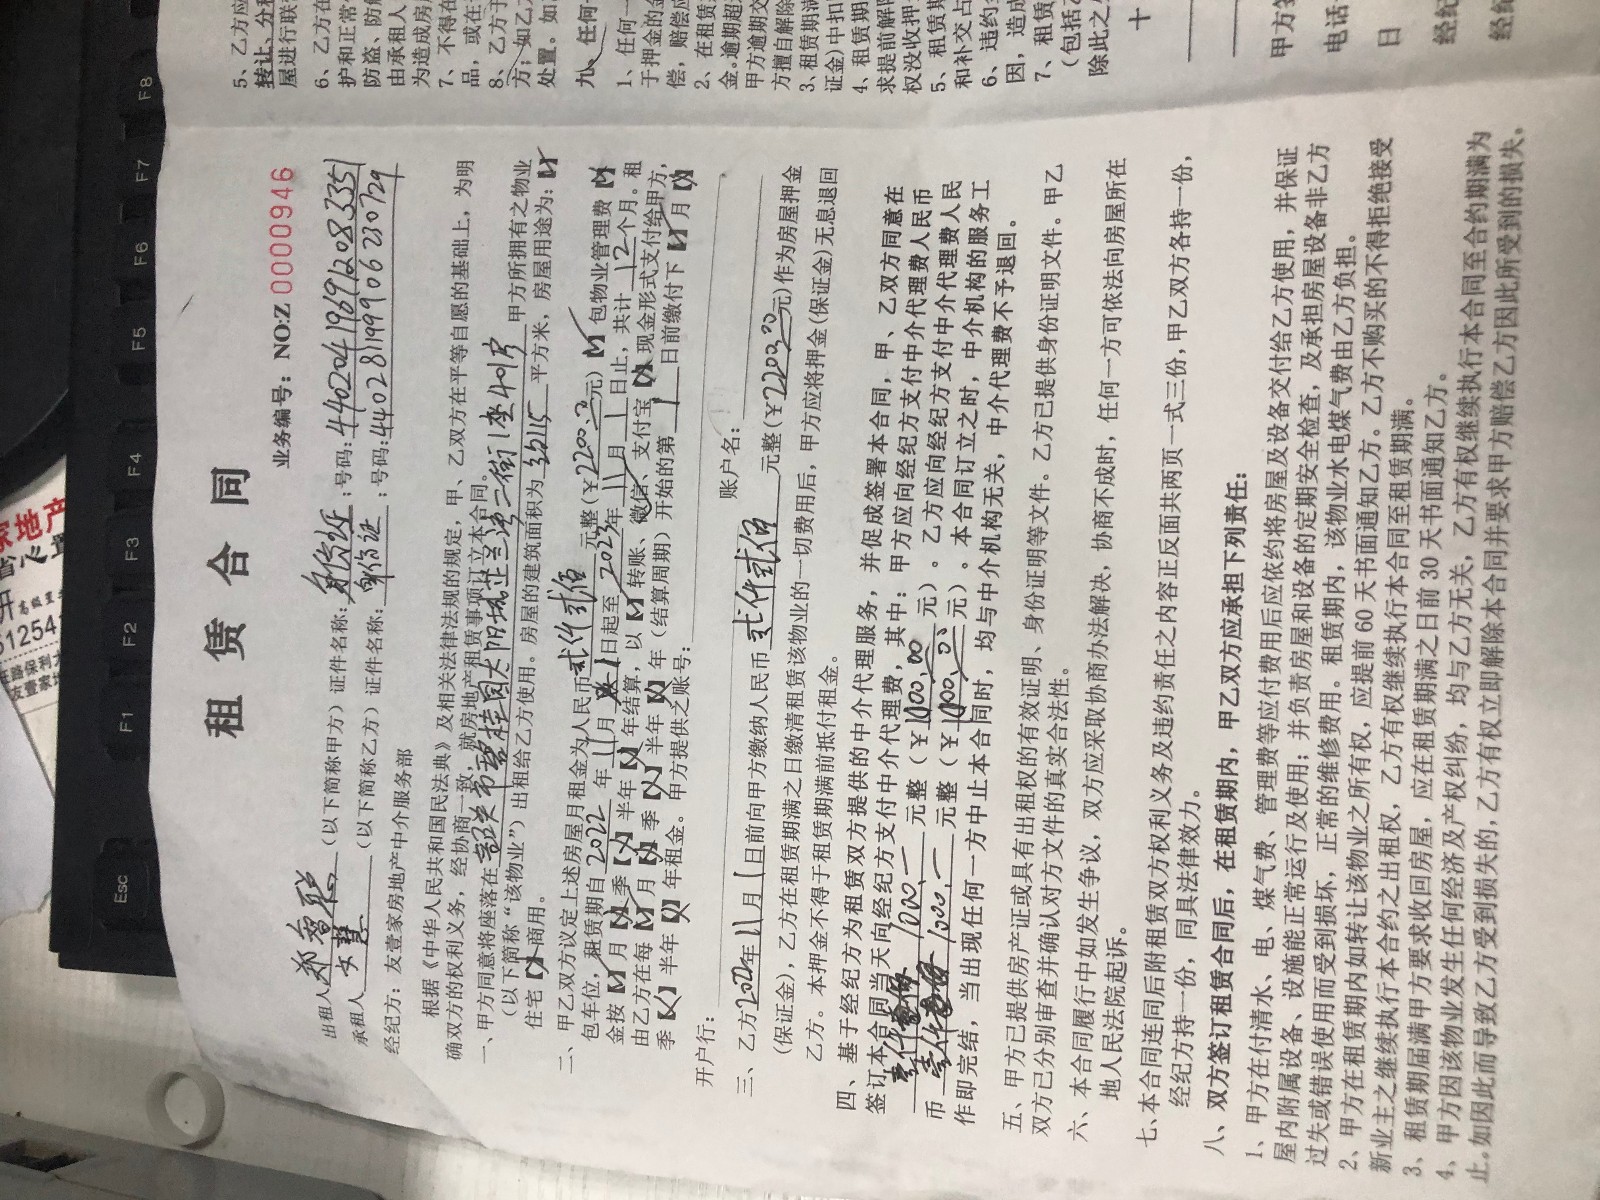 租赁合同
业务编号：NO:Z 0000946
出租人 （以下简称甲方）证件名称：身份证：号码：440204196912083351
承租人 （以下简称乙方）证件名称：身份证：号码：440281199906230729
经纪方：友壹家房地产中介服务部
根据《中华人民共和国民法典》及相关法律法规的规定，甲、乙双方在平等自愿的基础上，为明
确双方的权利义务，经协商一致，就房地产租赁事项订立本合同。
一、甲方同意将座落在韶关市碧桂园太阳城芷兰湾二街1座401房甲方所拥有之物业
（以下简称“该物业”）出租给乙方使用。房屋的建筑面积为 平方米，房屋用途为：【√】
住宅【×】商用。
二、甲乙双方议定上述房屋月租金为人民币贰仟贰佰元整（￥2200.00元）【√】包物业管理费【√】
包车位，租赁期自2022年11月1日起至2023年11月1日止，共计12个月。租
金按【√】月【×】季【×】半年【×】年结算，以【√】转账、微信、支付宝【×】现金形式支付给甲方，
由乙方在每【√】月【×】季【×】半年【×】年（结算周期）开始的第1日前缴付下【√】月【×】
季【×】半年【×】年租金。甲方提供之账号：
开户行： 账户名：
三、乙方2022年11月1日前向甲方缴纳人民币贰仟贰佰元整（￥2200.00元）作为房屋押金
（保证金），乙方在租赁期满之日缴清租赁该物业的一切费用后，甲方应将押金（保证金）无息退回
乙方。本押金不得于租赁期满前抵付租金。
四、基于经纪方为租赁双方提供的中介代理服务，并促成签署本合同，甲、乙双方同意在
签订本合同当天向经纪方支付中介代理费，其中：甲方应向经纪方支付中介代理费人民币
1000.—元整（￥1000.00元）。乙方应向经纪方支付中介代理费人民
币 1000.—元整（￥1000.00元）。本合同订立之时，中介机构的服务工
作即完结，当出现任何一方中止本合同时，均与中介机构无关，中介代理费不予退回。
五、甲方已提供房产证或具有出租权的有效证明、身份证明等文件。乙方已提供身份证明文件。甲乙
双方已分别审查并确认对方文件的真实合法性。
六、本合同履行中如发生争议，双方应采取协商办法解决，协商不成时，任何一方可依法向房屋所在
地人民法院起诉。
七、本合同连同后附租赁双方权利义务及违约责任之内容正反面共两页一式三份，甲乙双方各持一份，
经纪方持一份，同具法律效力。
八、双方签订租赁合同后，在租赁期内，甲乙双方应承担下列责任：
1、甲方在付清水、电、煤气费、管理费等应付费用后应依约将房屋及设备交付给乙方使用，并保证
屋内附属设备、设施能正常运行及使用；并负责房屋和设备的定期安全检查，及承担房屋设备非乙方
过失或错误使用而受到损坏，正常的维修费用。租赁期内，该物业水电煤气费由乙方负担。
2、甲方在租赁期内如转让该物业之所有权，应提前60天书面通知乙方。乙方不购买的不得拒绝接受
新业主之继续执行本合约之出租权，乙方有权继续执行本合同至租赁期满。
3、租赁期届满甲方要求收回房屋，应在租赁期满之日前30天书面通知乙方。
4、甲方因该物业发生任何经济及产权纠纷，均与乙方无关，乙方有权继续执行本合同至合约期满为
止。如因此而导致乙方受到损失的，乙方有权立即解除本合同并要求甲方赔偿乙方因此所受到的损失。
5、乙方应
转让、分租
屋进行联
6、乙方在
护和正常
防盗、防
由承租人
为造成房
7、不得在
品，或在
8、乙方于
方；如乙
处置。如
九、任何一
1、任何一
于押金的金
偿，赔偿应
2、在租赁
金。逾期超
甲方逾期交
方擅自解除
3、租赁期满
证金）中扣
4、租赁期
求提前解除
权没收押金
5、租赁期
和补交占
6、违约
因，造成
7、租赁
（包括乙
除此之
十
甲方签
电话
日
经纪
经纪
Esc F1 F2 F3 F4 F5 F6 F7 F8